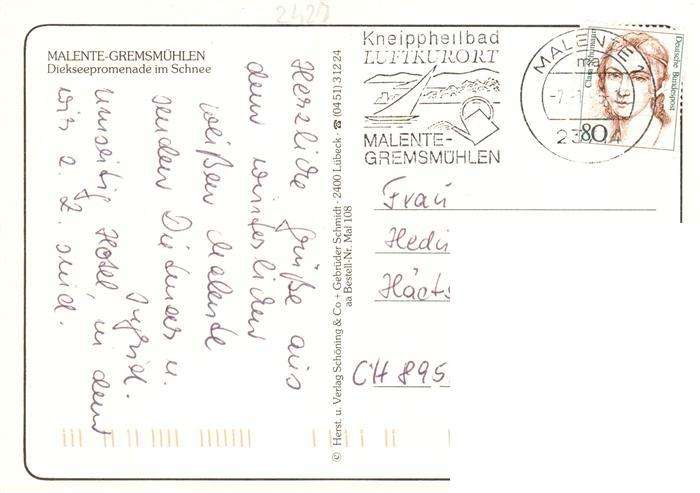 2427
MALENTE-GREMSMÜHLEN
Diekseepromenade im Schnee
Herzliche Grüße aus
dem winterlichen
weißen Malente
senden Dietmar u.
Ingrid.
Umseitig Hotel, in dem
wir z. Z. sind.
© Herst. u. Verlag Schöning & Co + Gebrüder Schmidt · 2400 Lübeck · ☎ (04 51) 3 12 24
aa Bestell-Nr. Mal 108
Kneippheilbad
LUFTKURORT
MALENTE-
GREMSMÜHLEN
MALENTE
ma
23
Clara Schumann
Deutsche Bundespost
80
Frau
CH 895